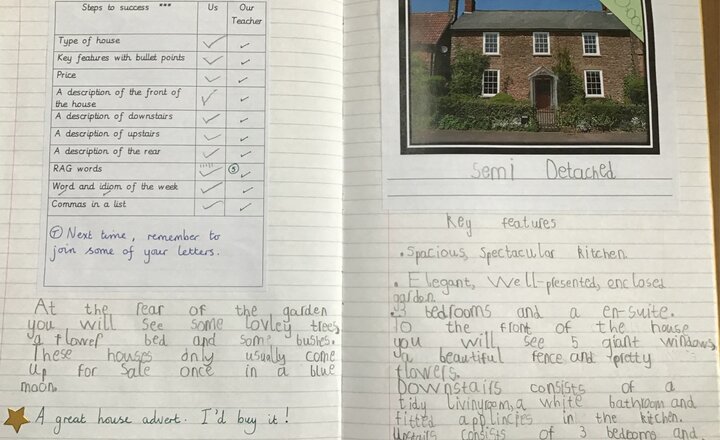 Steps to success *** Us Our Teacher
Type of house
Key features with bullet points
Price
A description of the front of
the house
A description of downstairs
A description of upstairs
A description of the rear
RAG words 5
Word and idiom of the week
Commas in a list
T Next time, remember to
join some of your letters.
At the rear of the garden
you will see some lovley trees,
a flower bed and some bushes.
These houses only usually come
up for sale once in a blue
moon.
A great house advert. I'd buy it!
Semi Detached
Key features
• Spacious, Spectacular kitchen.
• Elegant, Well-presented, enclosed
garden.
• 3 bedrooms and a en-suite.
To the front of the house
you will see 5 giant windows,
a beautiful fence and pretty
flowers.
Downstairs consists of a
tidy livingroom, a white bathroom and
fitted applincies in the kitchen.
Upstairs consists of 3 bedrooms and